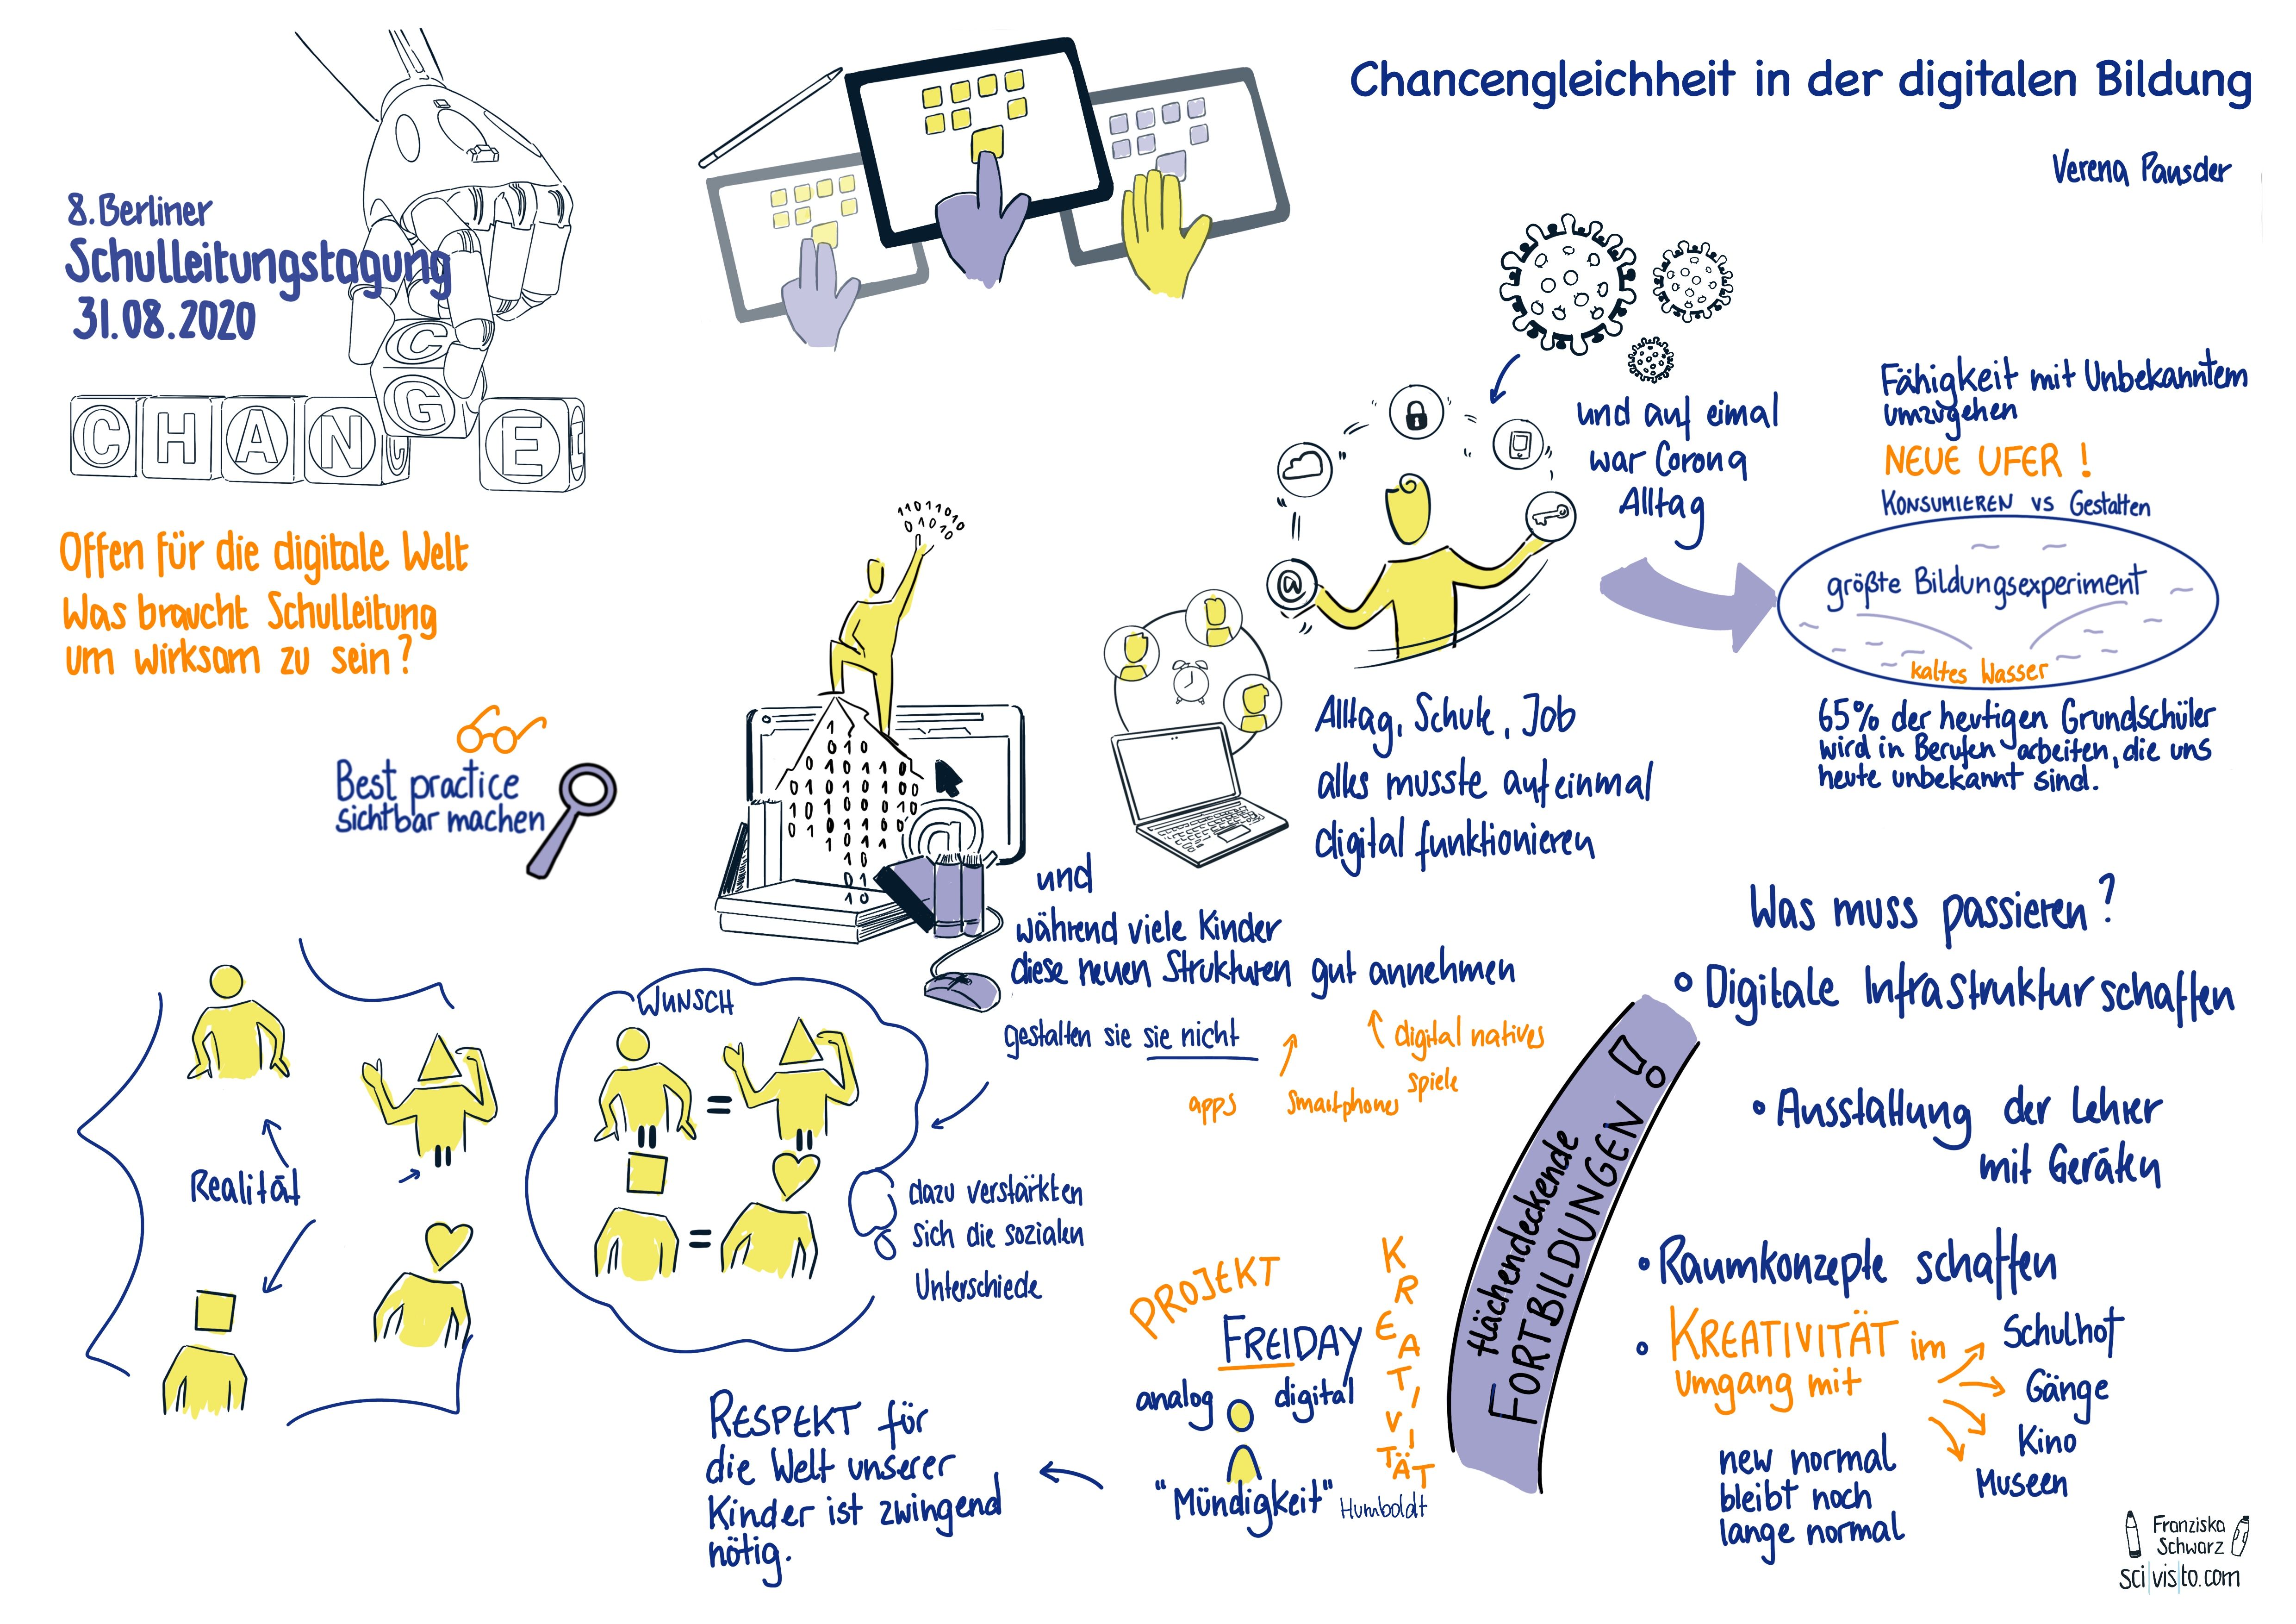 Chancengleichheit in der digitalen Bildung
Verena Pausder
8. Berliner
Schulleitungstagung
31.08.2020
C
G
CHAN E
Offen für die digitale Welt
Was braucht Schulleitung
um wirksam zu sein?
Best practice
sichtbar machen
11011010
01010
und auf eimal
war Corona
Alltag
@
Fähigkeit mit Unbekanntem
umzugehen
NEUE UFER!
KONSUMIEREN VS Gestalten
größte Bildungsexperiment
kaltes Wasser
65% der heutigen Grundschüler
wird in Berufen arbeiten, die uns
heute unbekannt sind.
Alltag, Schule, Job
alles musste auf einmal
digital funktionieren
@
und
während viele Kinder
diese neuen Strukturen gut annehmen
gestalten sie sie nicht
digital natives
spiele
apps
smartphones
WUNSCH
=
=
Realität
dazu verstärkten
sich die sozialen
Unterschiede
RESPEKT für
die Welt unserer
Kinder ist zwingend
nötig.
PROJEKT
FREIDAY
analog digital
"Mündigkeit" Humboldt
KREATIVITÄT
flächendeckende
FORTBILDUNGEN!
Was muss passieren?
• Digitale Infrastruktur schaffen
• Ausstattung der Lehrer
mit Geräten
• Raumkonzepte schaffen
• KREATIVITÄT im
umgang mit
Schulhof
Gänge
Kino
Museen
new normal
bleibt noch
lange normal
Franziska
Schwarz
sci|vis|to.com